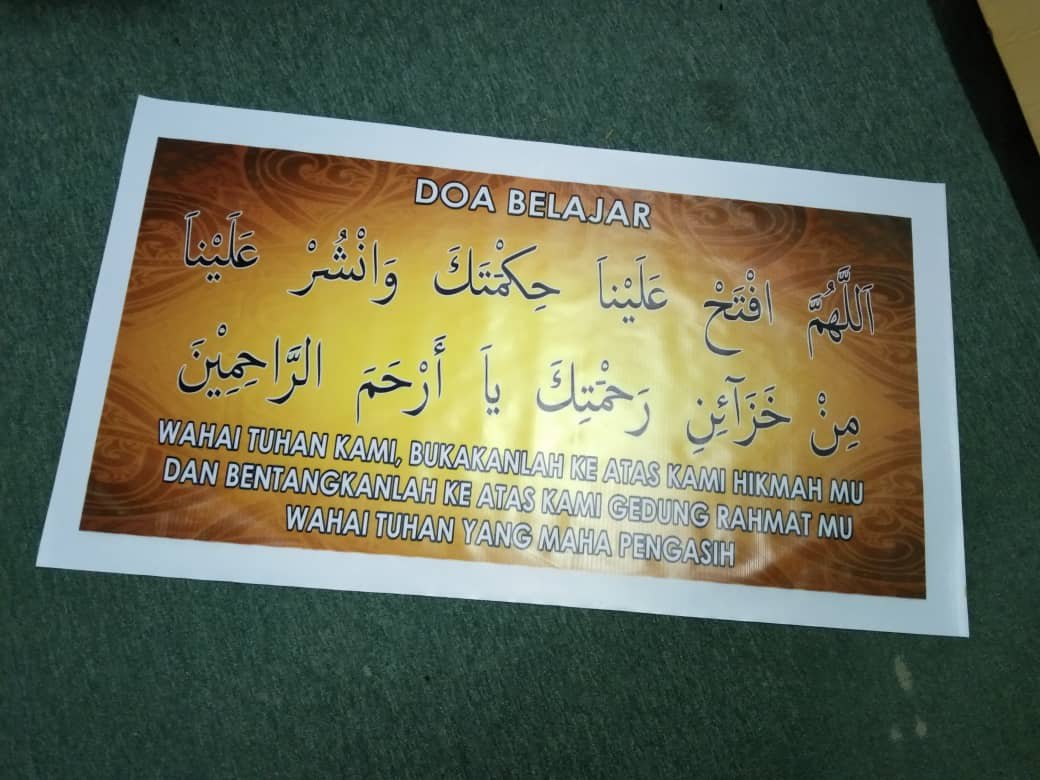 DOA BELAJAR
اَللَّهُمَّ افْتَحْ عَلَيْناَ حِكْمَتَكَ وَانْشُرْ عَلَيْناَ
مِنْ خَزَآئِنِ رَحْمَتِكَ ياَ أَرْحَمَ الرَّاحِمِيْنَ
WAHAI TUHAN KAMI, BUKAKANLAH KE ATAS KAMI HIKMAH MU
DAN BENTANGKANLAH KE ATAS KAMI GEDUNG RAHMAT MU
WAHAI TUHAN YANG MAHA PENGASIH